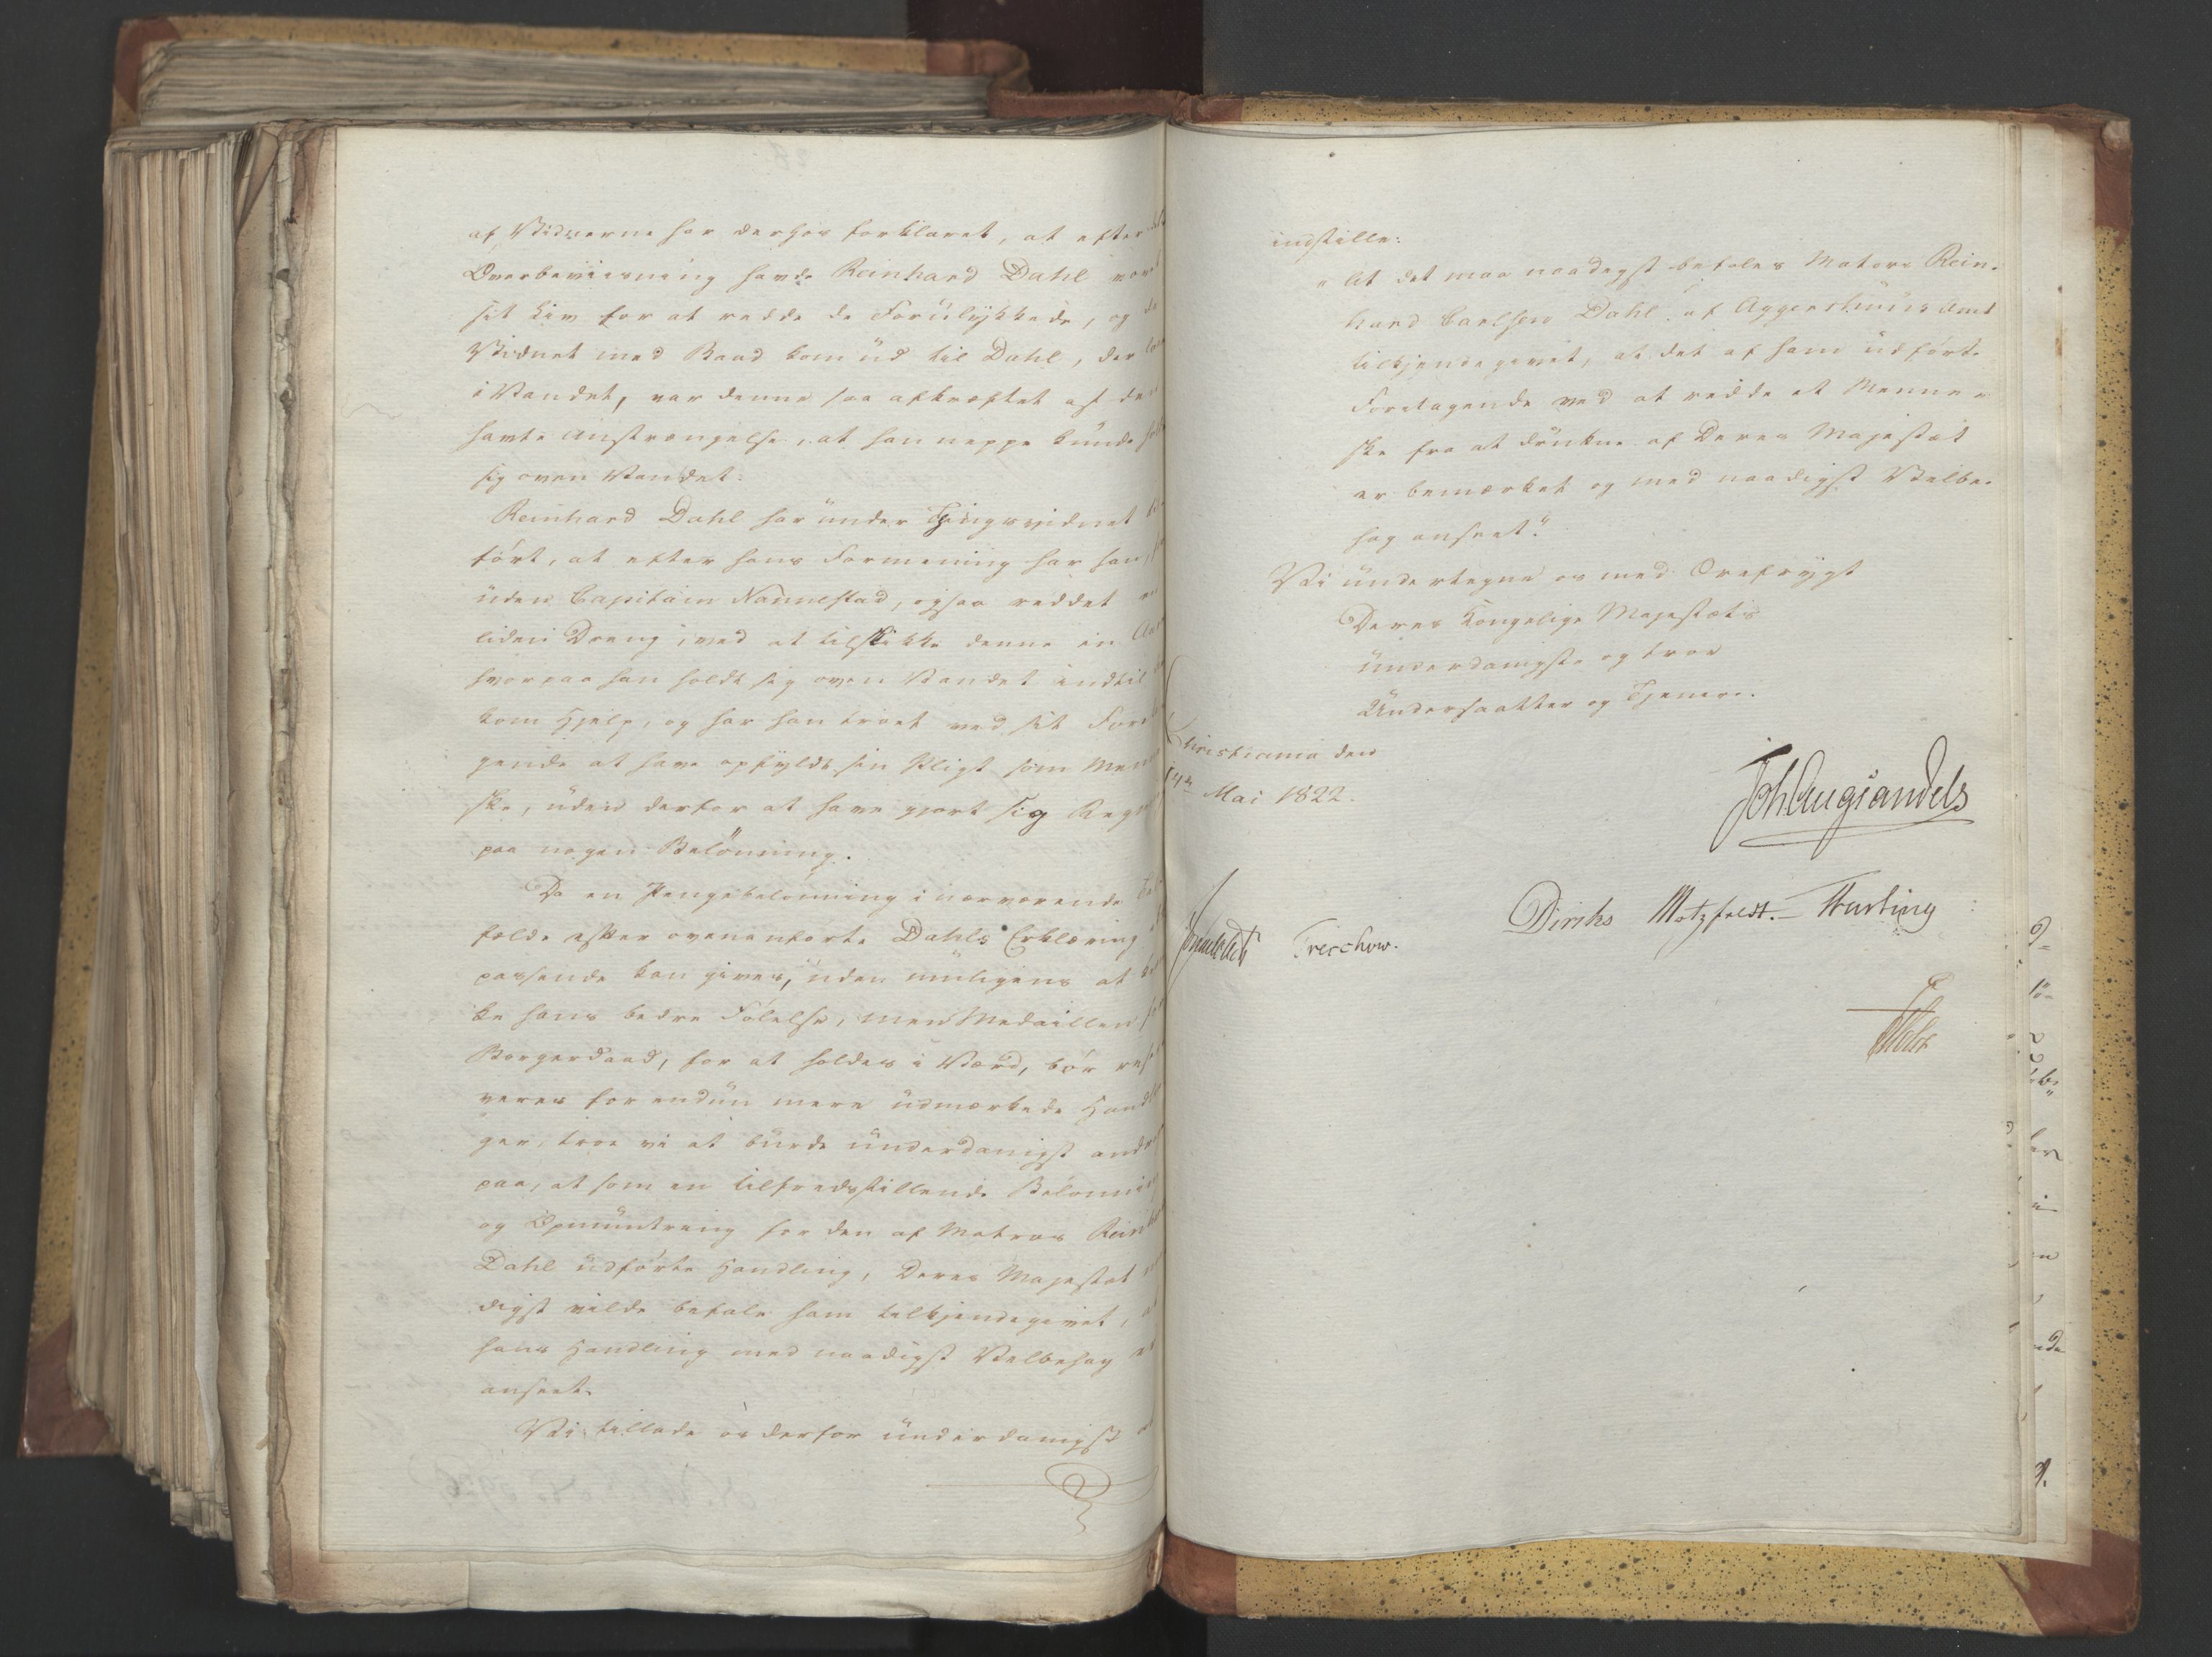 af Vidnerne har derhos forklaret, at efter
Overbeviisning havde Reinhard Dahl
sit Liv for at redde de Forulykkede, og da
Vidnet med Baad kom ud til Dahl, der
i Vandet, var denne saa afkræftet af den
havte Anstrængelse, at han neppe kunde
sig oven Vandet.
Reinhard Dahl har under Thingsvidnet
ført, at efter hans Formening har han,
uden Capitain Nannestad, ogsaa reddet en
liden Dreng, ved at tilskikke denne en Aare
hvorpaa han holdt sig oven Vandet indtil
kom Hjelp, og har han troet ved sit Foreta
gende at have opfyldt sin Pligt som Menne
ske, uden derfor at have gjort sig Regning
paa nogen Belönning.
Da en Pengebelönning i nærværende Til
fælde efter ovenanførte Dahls Erklæring
passende kan gives, uden muligens at kræn
ke hans bedre Følelse, men Medaillen for
Borgerdaad, for at holdes i Værd, bör reser
veres for endnu mere udmærkede Handlin
ger, troe vi at burde underdanigst andrage
paa, at som en tilfredsstillende Belønning
og Opmuntring for den af Matros Reinhard
Dahl udførte Handling, Deres Majestæt naa
digst vilde befale ham tilkjendegivet, at
hans Handling med naadigst Velbehag er
anseet.
Vi tillade os derfor underdanigst at
indstille:
"At det maa naadigst befales Matros Rein-
hard Carlsen Dahl af Aggershuus Amt
tilkjendegivet, at det af ham udførte
Foretagende ved at redde et Menne-
ske fra at drukne af Deres Majestæt
er bemærket og med naadigst Velbe-
hag anseet."
Vi undertegne os med Ærefrygt
Deres Kongelige Majestæts
underdanigste og troe
Undersaatter og Tjenere.
Christiania den
14de Mai 1822.
Joh Aug Sandels
Sommerhielm Treschow. Diriks Motzfeldt. Fasting
Holst